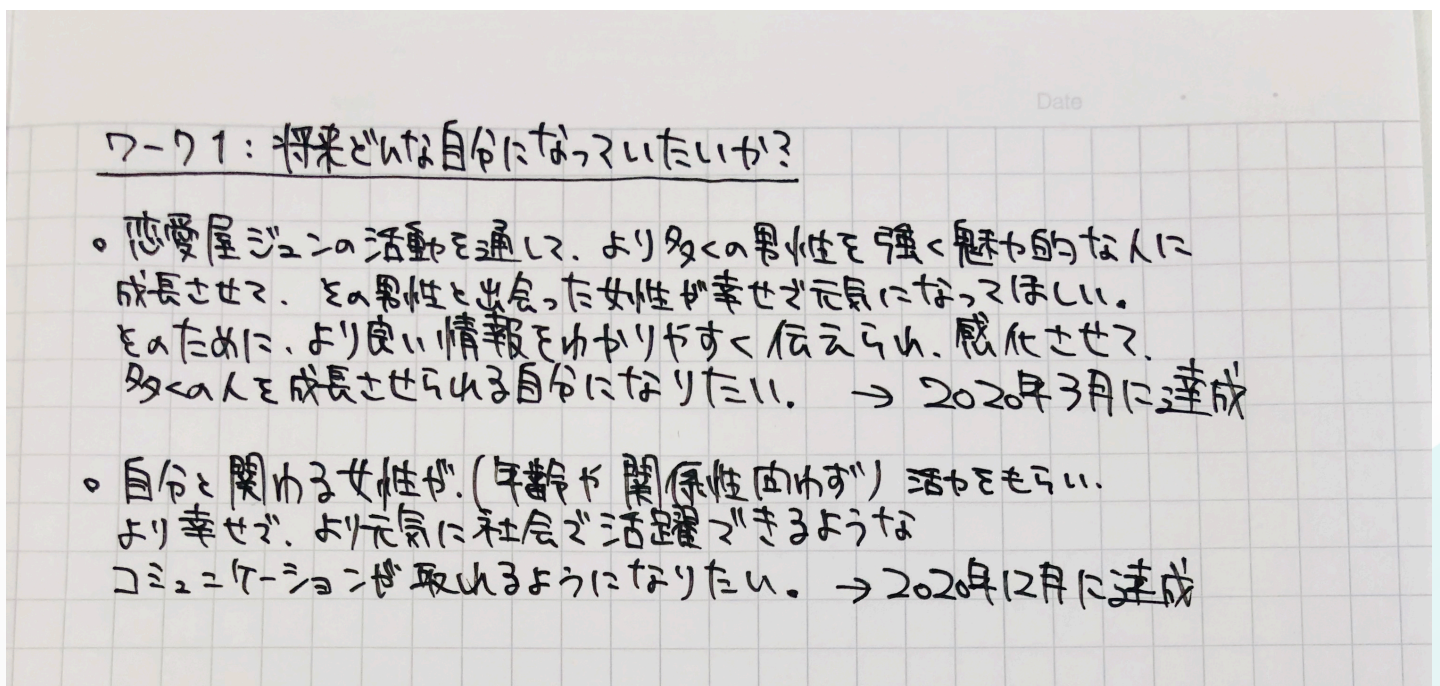 Date
ワーク1:将来どんな自分になっていたいか?
。恋愛屋ジュンの活動を通して、より多くの男性を強く魅力的な人に
成長させて、その男性と出会った女性が幸せで元気になってほしい。
そのために、より良い情報をわかりやすく伝えられ、感化させて、
多くの人を成長させられる自分になりたい。 → 2020年3月に達成
。自分と関わる女性が、(年齢や関係性問わず) 活力をもらい、
より幸せで、より元気に社会で活躍できるような
コミュニケーションが取れるようになりたい。 → 2020年12月に達成